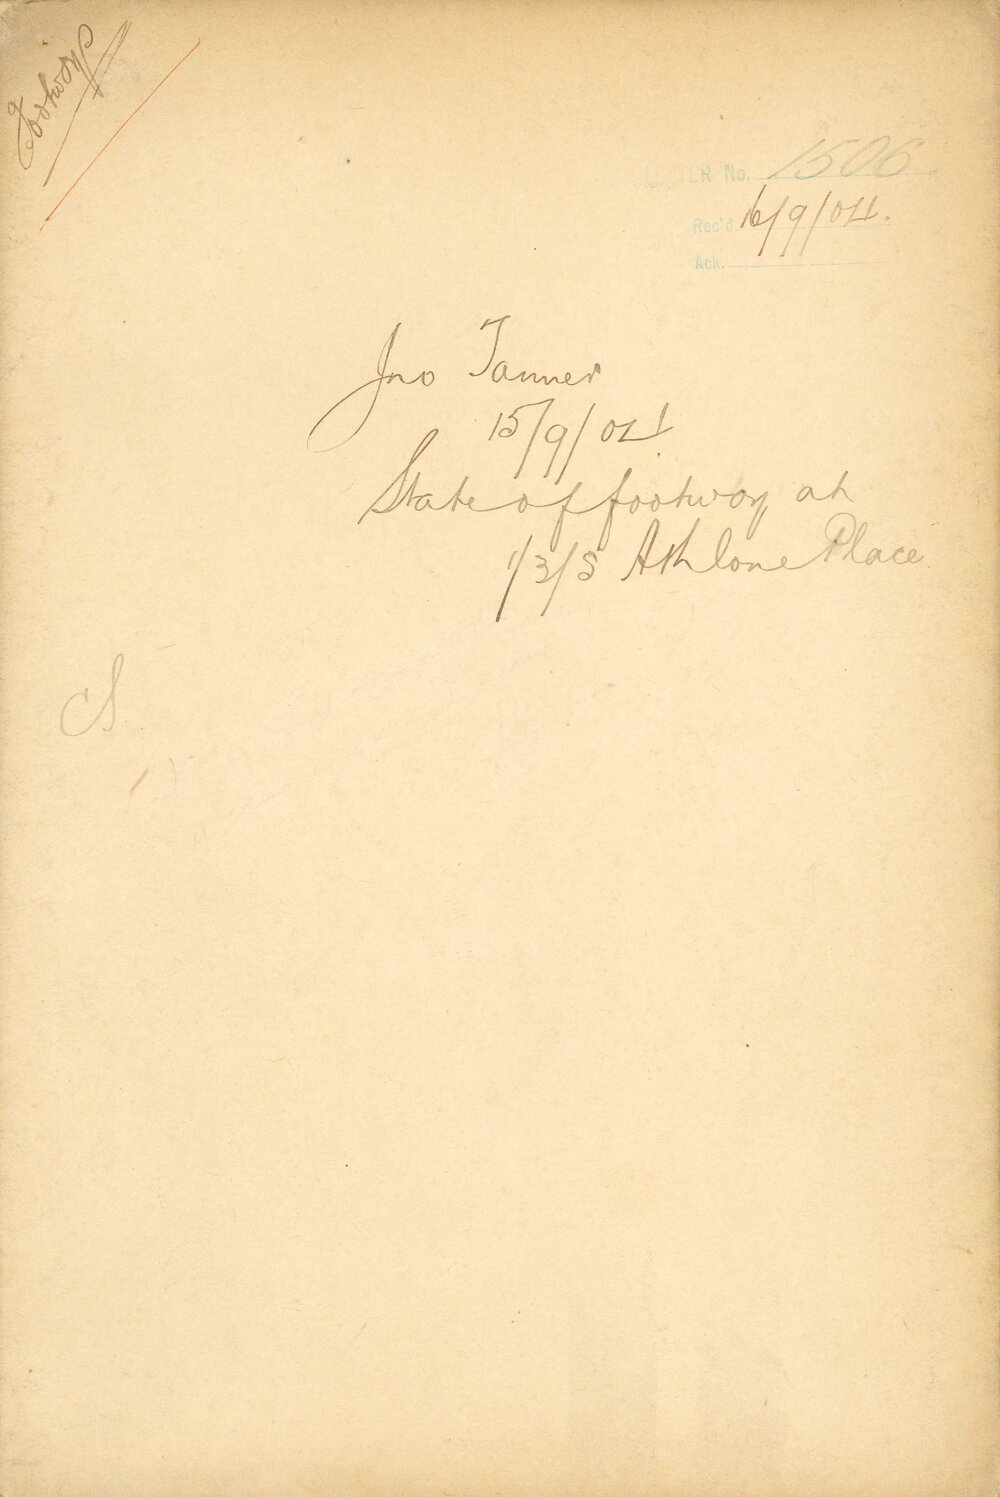 Footways
TER No. 1506
Rec'd 16/9/04.
Ack.
Jno Tanner
15/9/04
State of footway at
1/3/5 Athlone Place
CS